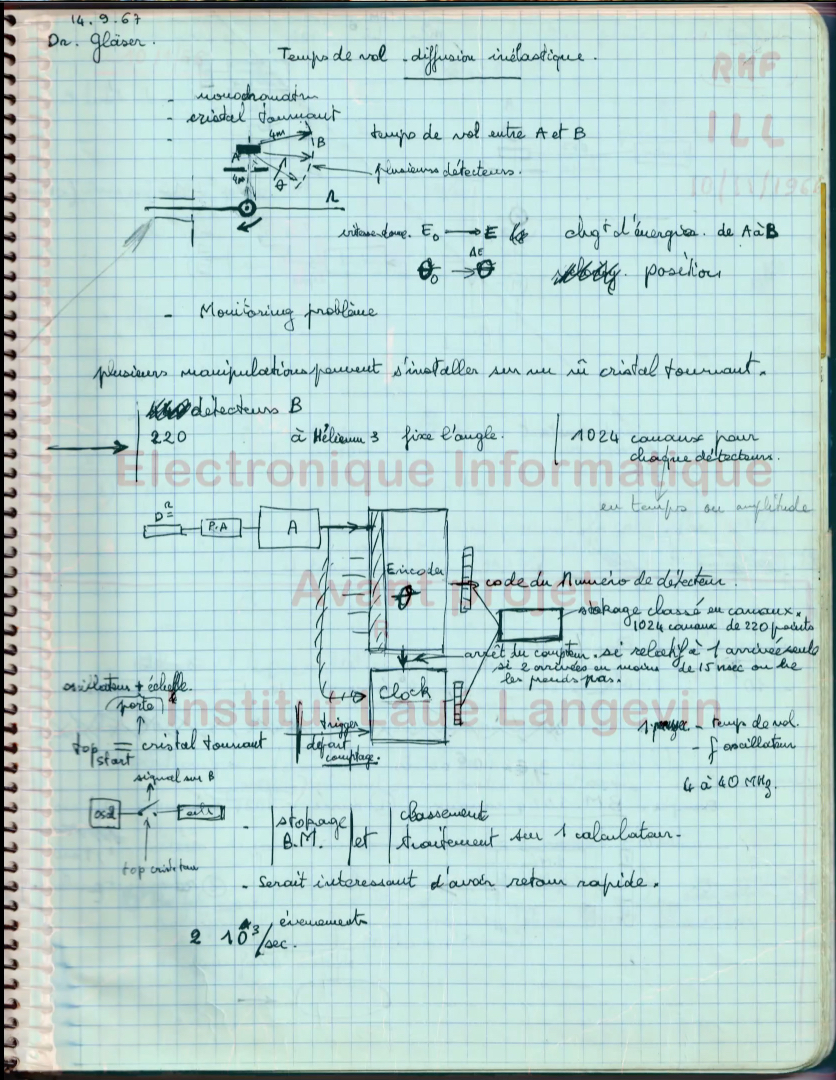 14.9.67
Dr. Gläser.
Temps de vol - diffusion inélastique.
RMF
ILL
- monochromatr
- cristal tournant
4m
A
B
temps de vol entre A et B
4m
θ
plusieurs détecteurs.
E₀ → E chgt d'énergie. de A à B
ΔE
θ₀ → θ position
- Monitoring problème
plusieurs manipulations peuvent s'installer sur un m̂ cristal tournant.
détecteurs B
220 à Hélium 3 fixe l'angle.
1024 canaux pour
chaque détecteurs.
Electronique Informatique
en temps ou amplitude
D
P.A
A
Encoder
θ
code du Numéro de détecteur.
Avant projet
stokage classé en canaux.
1024 canaux de 220 points
arrêt du compteur. si relatif à 1 arrivée seule
si 2 arrivées en moins de 15 nsec on ne
les prends pas.
oscillateur + échelle.
(porte)
Clock
Institut Laue Langevin
trigger
départ
comptage.
top start = cristal tournant
- temps de vol.
- f oscillateur
4 à 40 MHz.
signal sur B
top cristal tour
- stokage B.M. et classement traitement sur 1 calculateur.
- Serait interessant d'avoir retour rapide.
2 10³ évenements/sec.